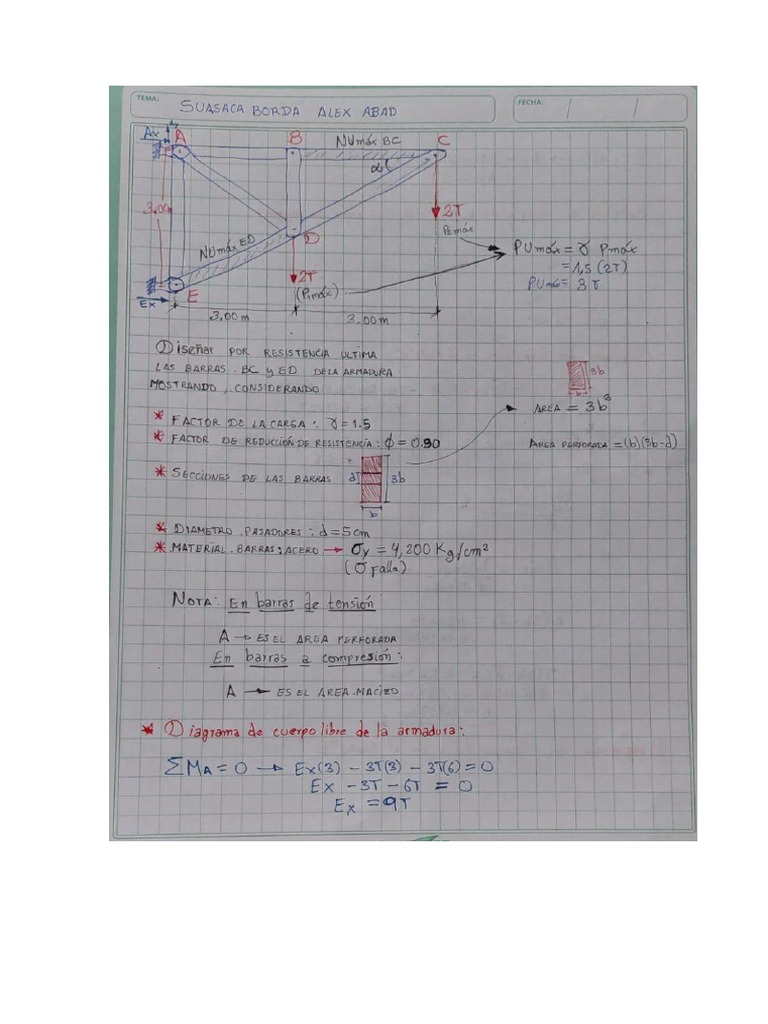 TEMA:
SUASACA BORDA ALEX ABAD
FECHA: / /
Ax
A
B
NUmáx BC
C
α
3.00
2T
P2máx
NUmáx ED
D
PUmáx = γ Pmáx
= 1,5 (2T)
2T
(P1máx)
E
Ex
3.00m
3.00m
Diseñar POR RESISTENCIA ULTIMA
LAS BARRAS . BC y ED DE LA ARMADURA
MOSTRANDO , CONSIDERANDO
3b
b
AREA = 3b³
* FACTOR DE LA CARGA : γ = 1.5
* FACTOR DE REDUCCIÓN DE RESISTENCIA : φ = 0.90
AREA PERFORADA = (b)(3b-d)
* SECCIONES DE LAS BARRAS
d
3b
b
* DIAMETRO . PASADORES : d = 5cm
* MATERIAL . BARRAS : ACERO → σy = 4,200 Kg/cm²
(σ Falla)
NOTA : En barras de tensión
A → ES EL AREA PERFORADA
En barras a compresión :
A → ES EL AREA MACIZO
* Diagrama de cuerpo libre de la armadura :
ΣMA = 0 → Ex(3) - 3T(3) - 3T(6) = 0
Ex - 3T - 6T = 0
Ex = 9T